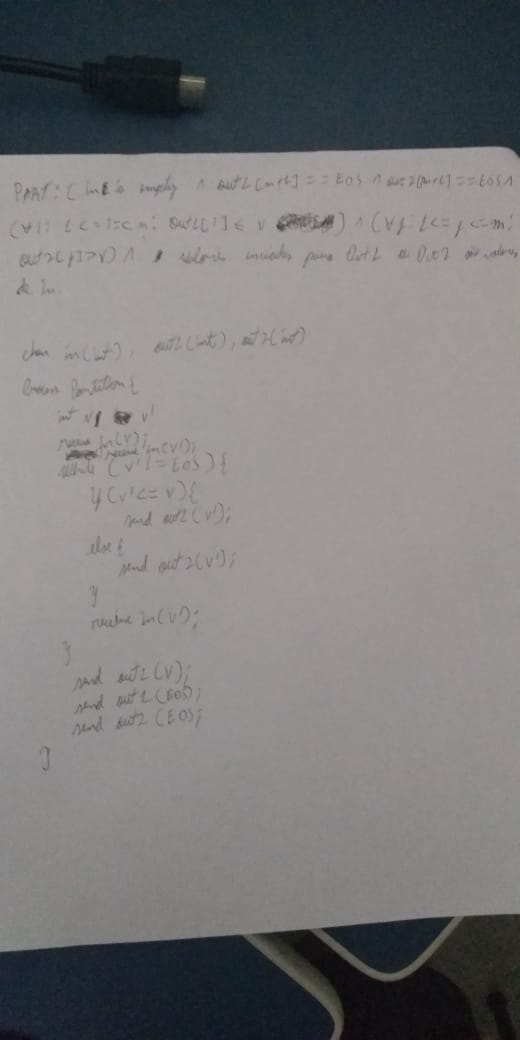 PART: ( In is empty ∧ out1[n+1] == EOS ∧ out2[m+1] == EOS ∧
(∀i: 1 <= i <= n: out1[i] ≤ v ) ∧ (∀j: 1 <= j <= m:
out2[j] > v) ∧ valores enviados para Out1 e Out2 são valores
de In.
chan in(int), out1(int), out2(int)
Process Partition {
int v, v'
receive in(v);
receive in(v');
while (v' != EOS) {
if (v' <= v) {
send out1(v');
else {
send out2(v');
}
receive in(v');
}
send out1(v);
send out1(EOS);
send out2(EOS);
}